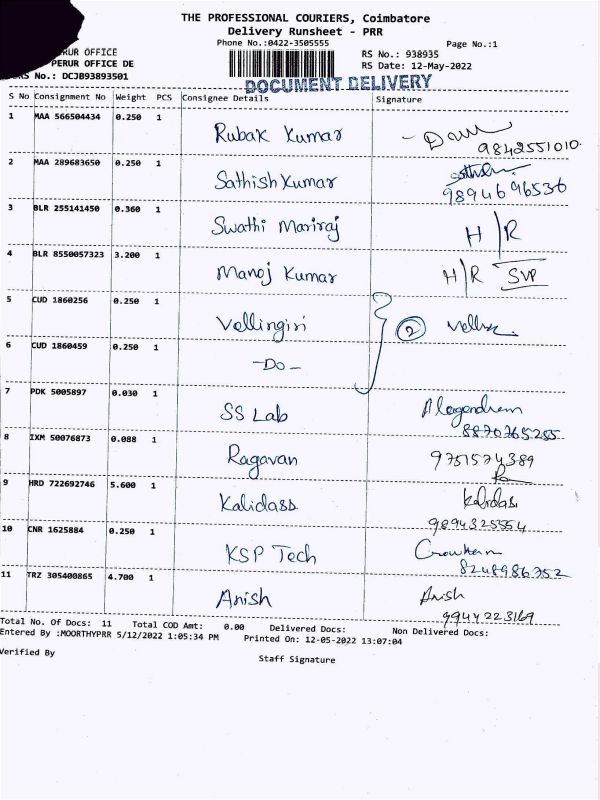 THE PROFESSIONAL COURIERS, Coimbatore
Delivery Runsheet - PRR
Phone No.:0422-3505555
Page No.:1
PERUR OFFICE
PERUR OFFICE DE
RS No.: 938935
RS Date: 12-May-2022
DRS No.: DCJB93893501
DOCUMENT DELIVERY
S No Consignment No Weight PCS Consignee Details Signature
1 MAA 566504434 0.250 1 Rubak Kumar
9842551010
2 MAA 289683650 0.250 1 Sathish Kumar
9894696536
3 BLR 255141450 0.360 1 Swathi Mariraj H/R
4 BLR 8550057323 3.200 1 Manoj Kumar H/R SVP
5 CUD 1860256 0.250 1 Vellingiri 2
6 CUD 1860459 0.250 1 -Do-
7 PDK 5005897 0.030 1 SS Lab
8870765255
8 IXM 50076873 0.088 1 Ragavan 9751574389
9 HRD 722692746 5.600 1 Kalidass Kalidass
9894325554
10 CNR 1625884 0.250 1 KSP Tech
8248986752
11 TRZ 305400865 4.700 1 Anish Anish
9944223169
Total No. Of Docs: 11 Total COD Amt: 0.00 Delivered Docs: Non Delivered Docs:
Entered By :MOORTHYPRR 5/12/2022 1:05:34 PM Printed On: 12-05-2022 13:07:04
Verified By
Staff Signature